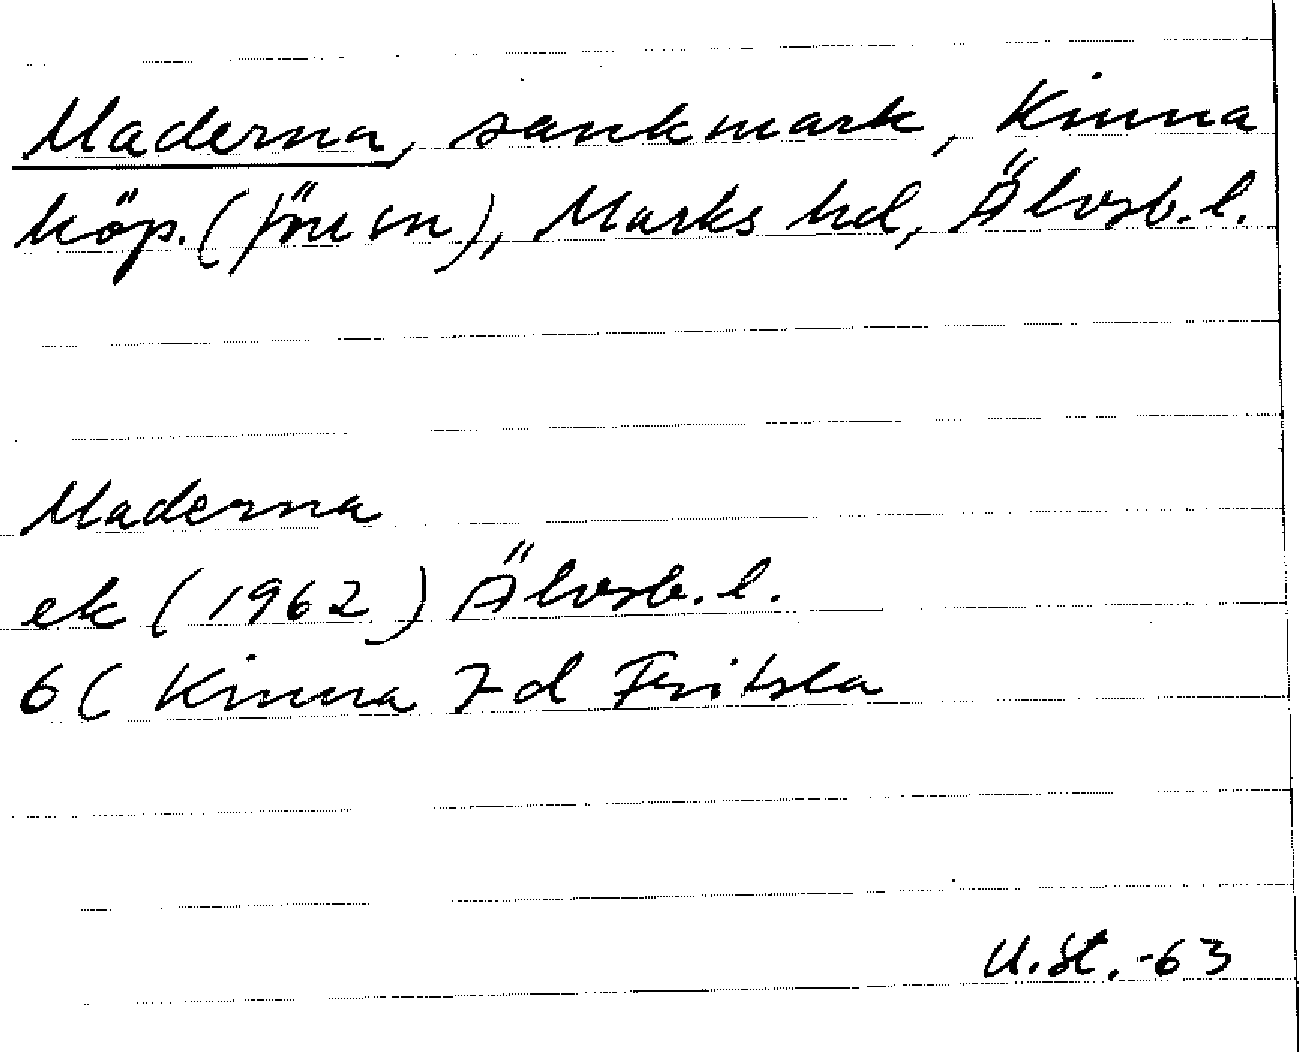 Maderna, sankmark, Kinna
köp. (förum), Marks hd, Älvsb. l.
Maderna
ek (1962) Älvsb. l.
6C Kinna 7d Fritsla
U. St. -63